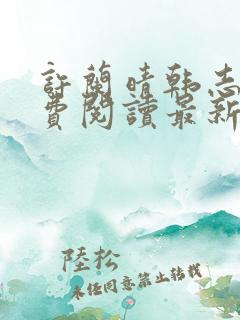 許蘭晴韩志
費閱讀最新
陸松
未经同意禁止转载